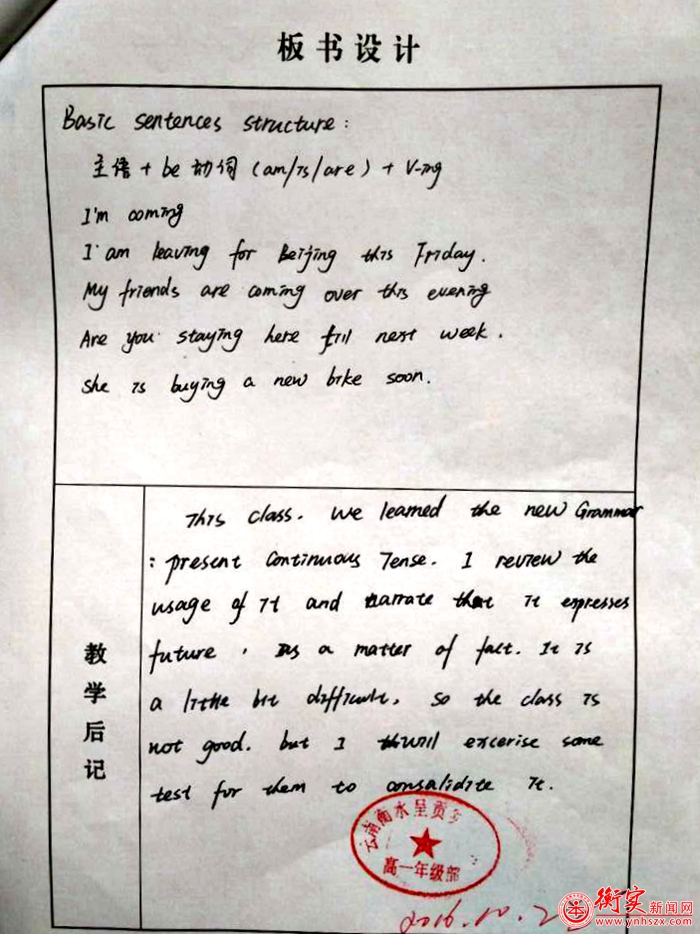 板书设计
Basic sentences structure:
主语 + be 动词 (am/is/are) + V-ing
I'm coming
I am leaving for Beijing this Friday.
My friends are coming over this evening
Are you staying here till next week.
she is buying a new bike soon.
教学后记
This class. we learned the new Grammar
: present Continuous Tense. I review the
usage of it and narrate that it expresses
future, as a matter of fact. It is
a little bit difficult, so the class is
not good. but I will excerise some
test for them to consalidite it.
云南衡水呈贡
高一年级部
2016.10.2
衡实新闻网
www.ynhszx.com